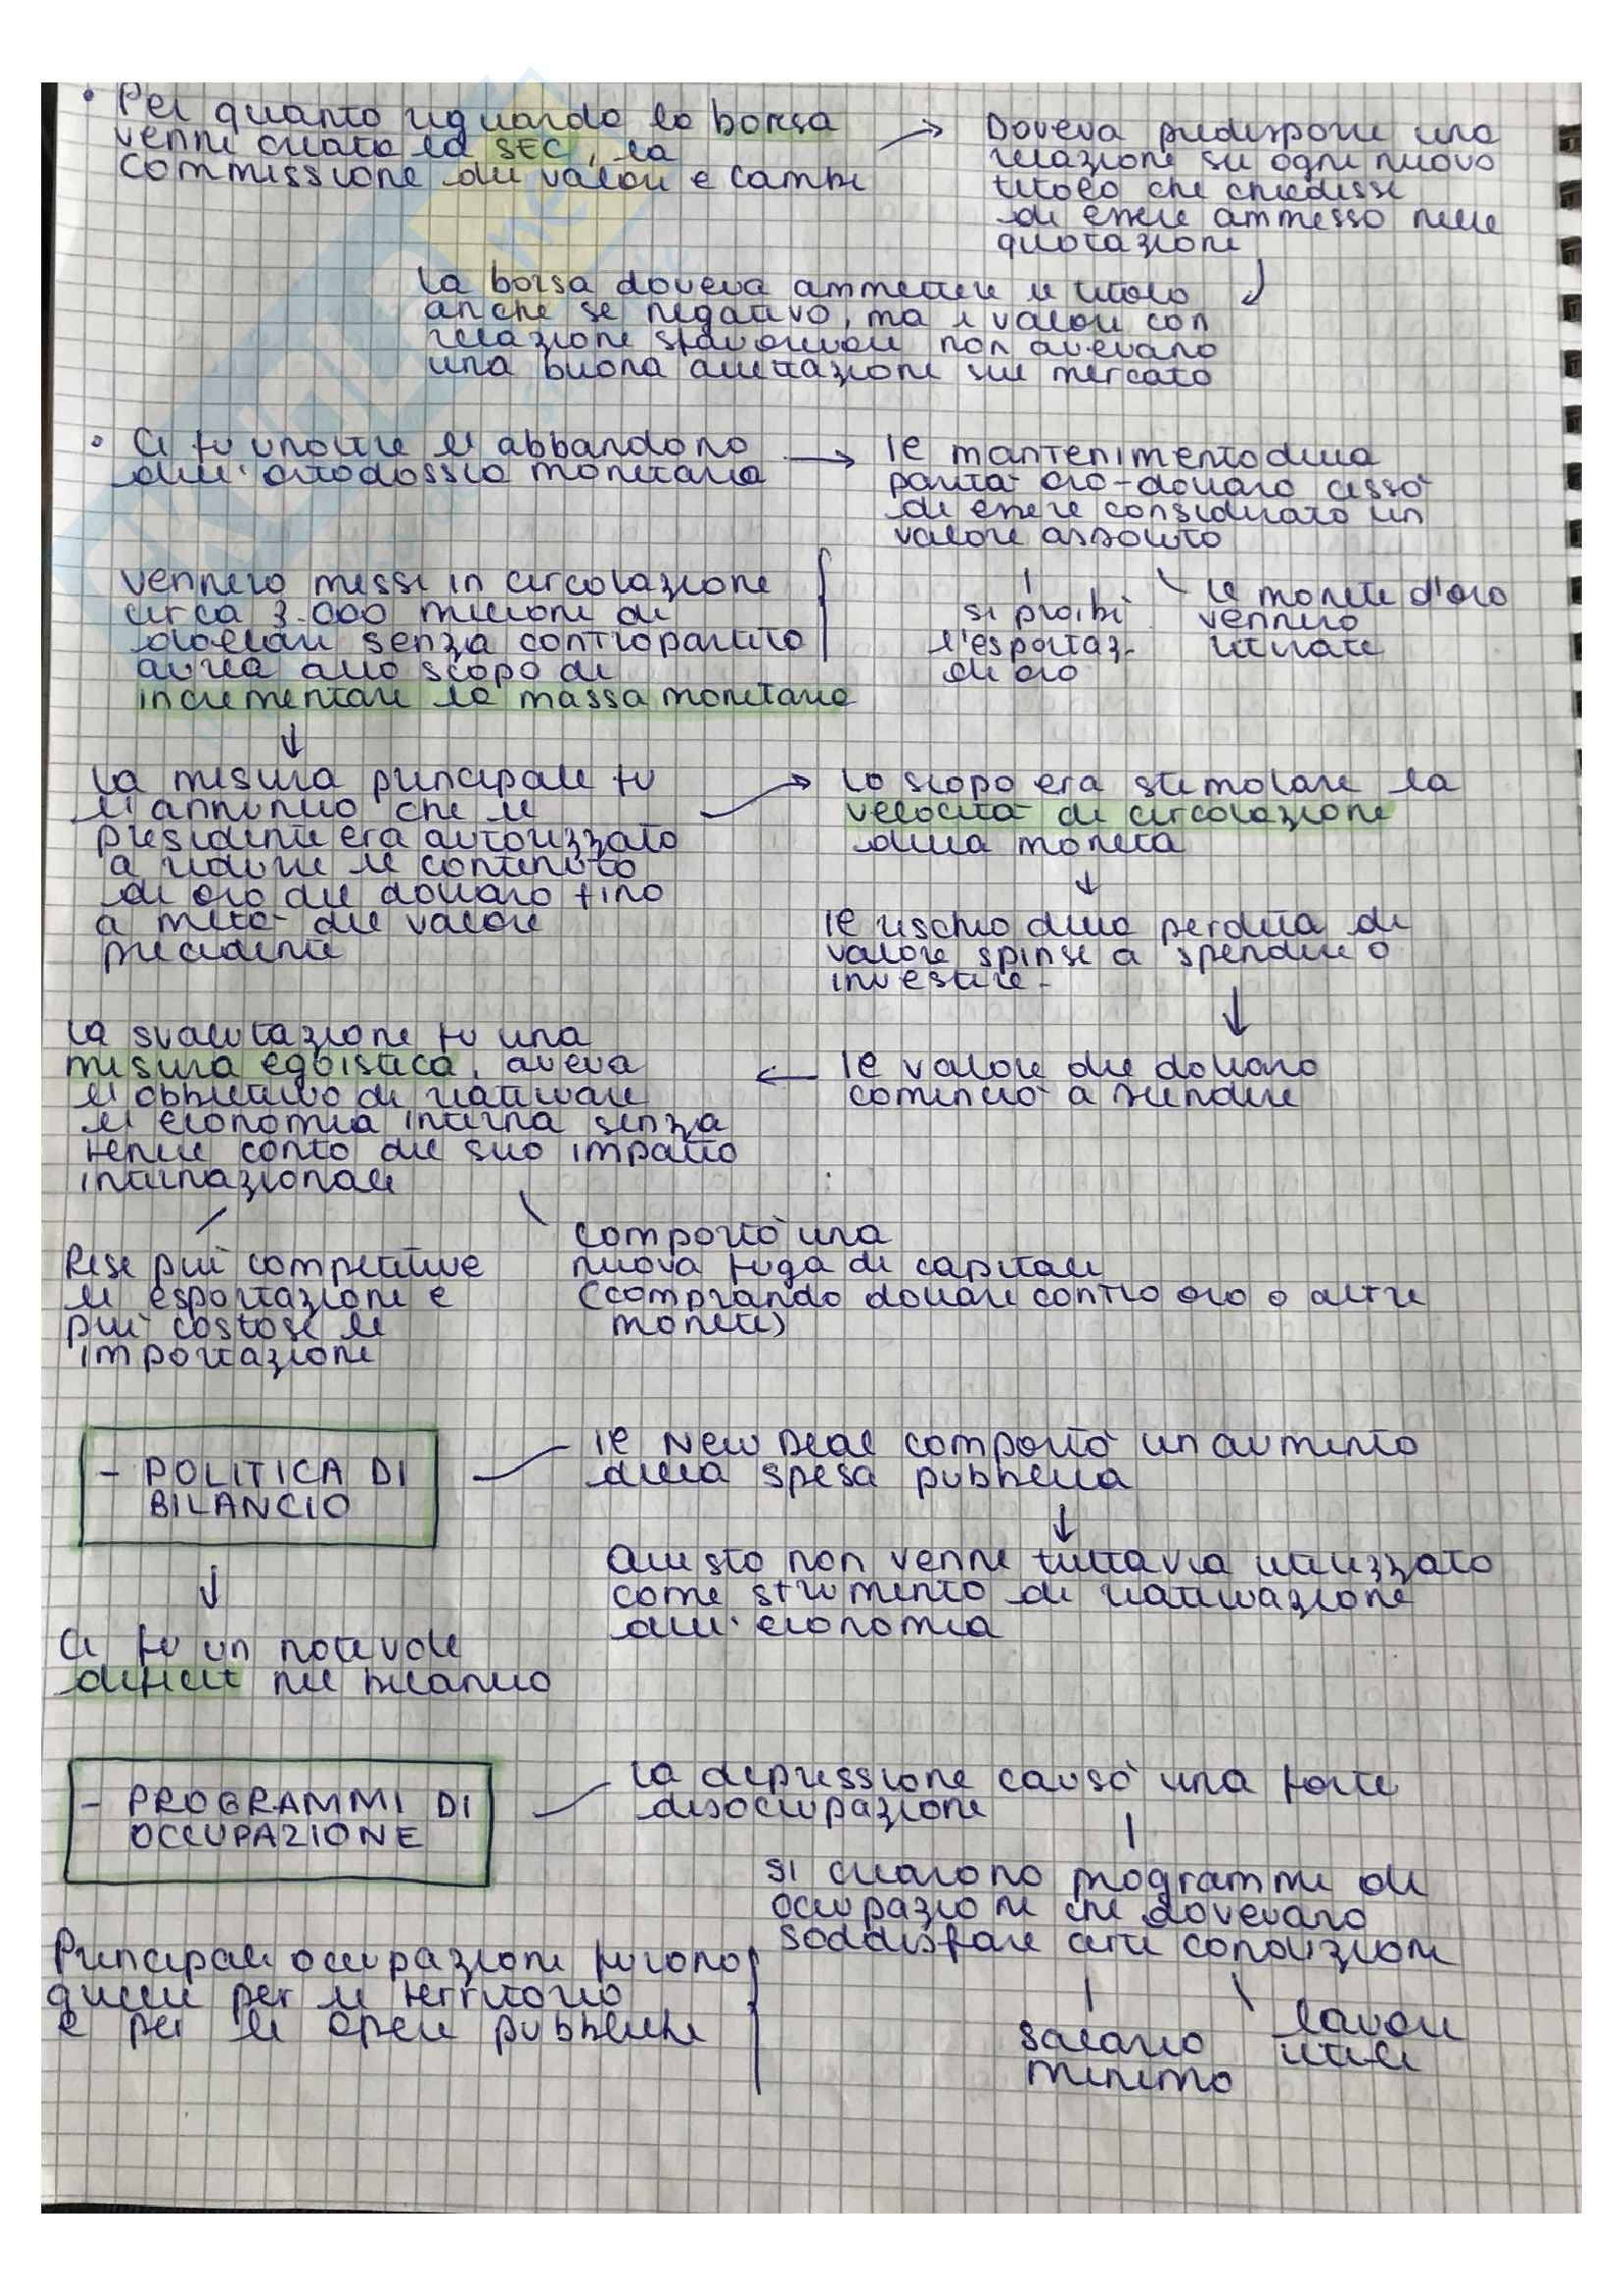 • Per quanto riguarda la borsa
venne creata la SEC, la
commissione dei valori e cambi
Doveva predisporre una
relazione su ogni nuovo
titolo che chiedesse
di essere ammesso nelle
quotazioni
La borsa doveva ammettere il titolo
anche se negativo, ma i valori con
relazione sfavorevole non avevano
una buona accettazione sul mercato
• Ci fu inoltre l'abbandono
dell'ortodossia monetaria
Il mantenimento della
parità oro-dollaro cessò
di essere considerato un
valore assoluto
si proibì
l'esportaz.
di oro
le monete d'oro
vennero
ritirate
Vennero messi in circolazione
circa 3.000 milioni di
dollari senza contropartita
aurea allo scopo di
incrementare la massa monetaria
La misura principale fu
l'annuncio che il
presidente era autorizzato
a ridurre il contenuto
di oro del dollaro fino
a metà del valore
precedente
Lo scopo era stimolare la
velocità di circolazione
della moneta
Il rischio della perdita di
valore spinse a spendere o
investire.
Il valore del dollaro
cominciò a scendere
La svalutazione fu una
misura egoistica, aveva
l'obbiettivo di riattivare
l'economia interna senza
tener conto del suo impatto
internazionale
Rese più competitive
le esportazioni e
più costose le
importazioni
comportò una
nuova fuga di capitali
(comprando dollari contro oro o altre
monete)
- POLITICA DI
BILANCIO
Il New Deal comportò un aumento
della spesa pubblica
Questo non venne tuttavia utilizzato
come strumento di riattivazione
dell'economia
Ci fu un notevole
deficit nel bilancio
- PROGRAMMI DI
OCCUPAZIONE
La depressione causò una forte
disoccupazione
Si crearono programmi di
occupazione che dovevano
soddisfare certe condizioni
salario
minimo
lavori
utili
Principali occupazioni furono
quelle per il territorio
e per le opere pubbliche